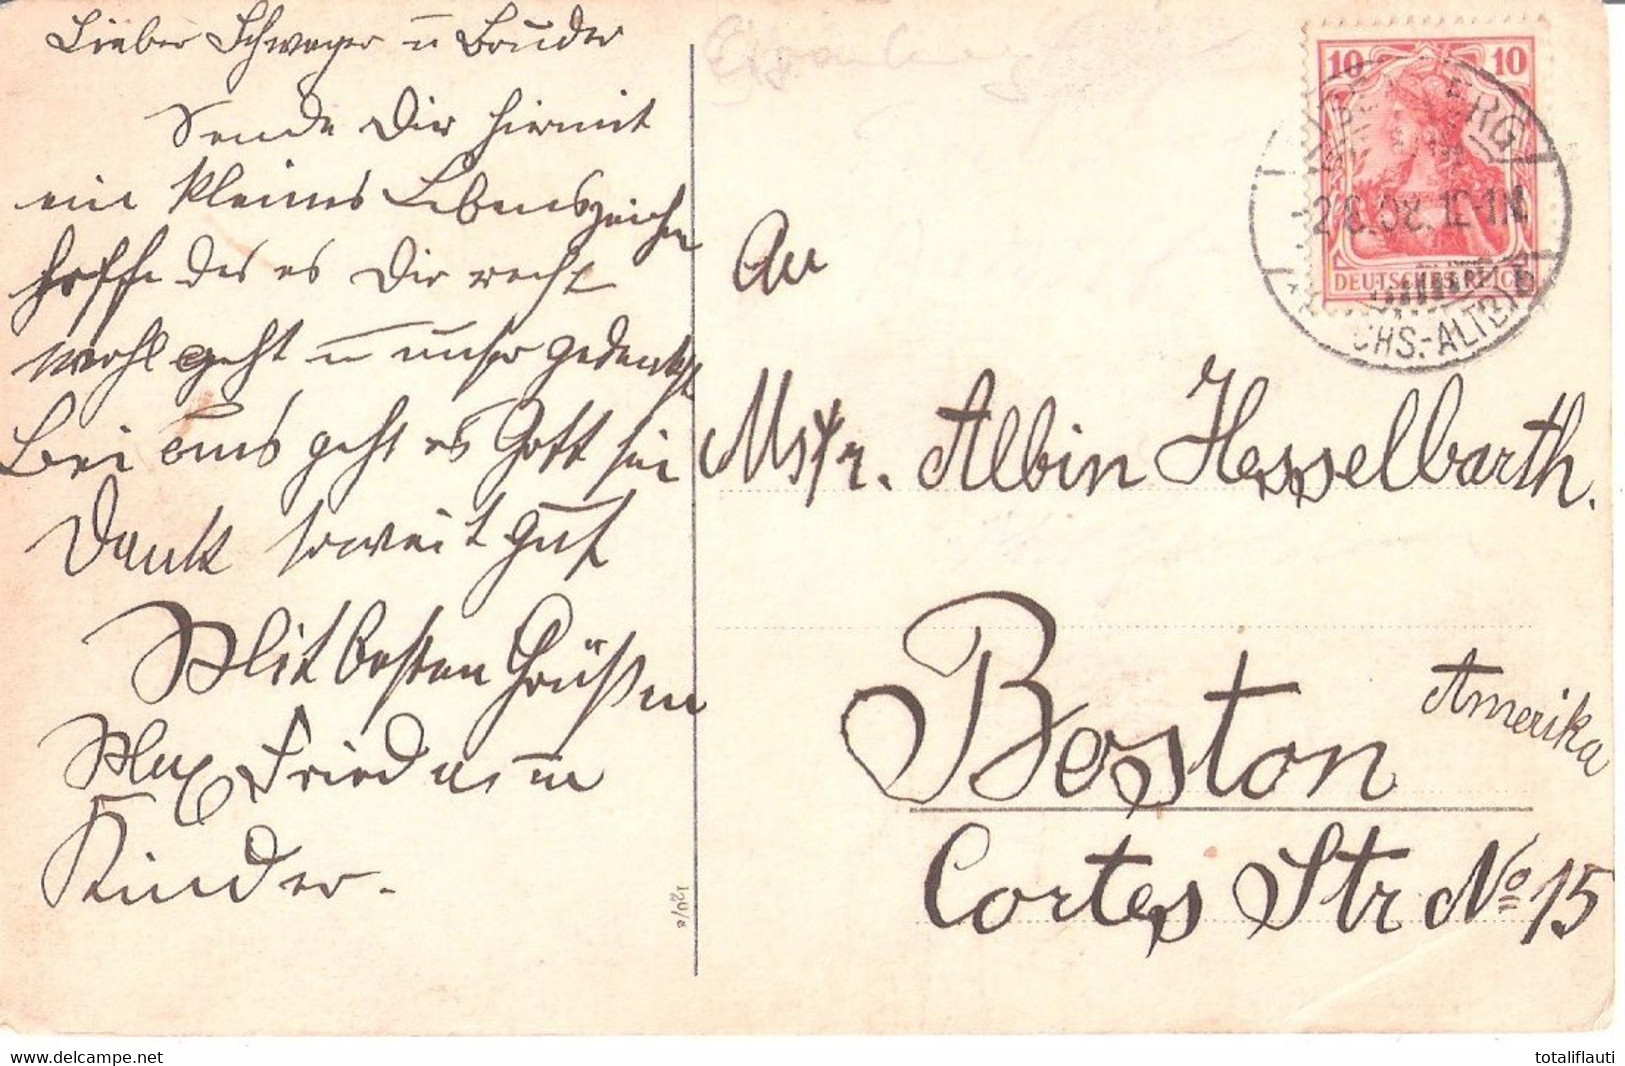 Lieber Schwager u Bruder
Sende Dir hiermit
ein kleines Lebenszeichen
hoffe das es Dir recht
wohl geht u unser gedenkst
Bei uns geht es Gott sei
Dank soweit gut
Mit besten Grüßen
Max Frieda u
Kinder.
An
Mstr. Albin Hesselbarth.
Boston
Amerika
Cortes Str No 15
10 10
DEUTSCHES REICH
ERG
2.8.08. 12-1N
CHS.-ALTB.
delcampe.net
totaliflauti